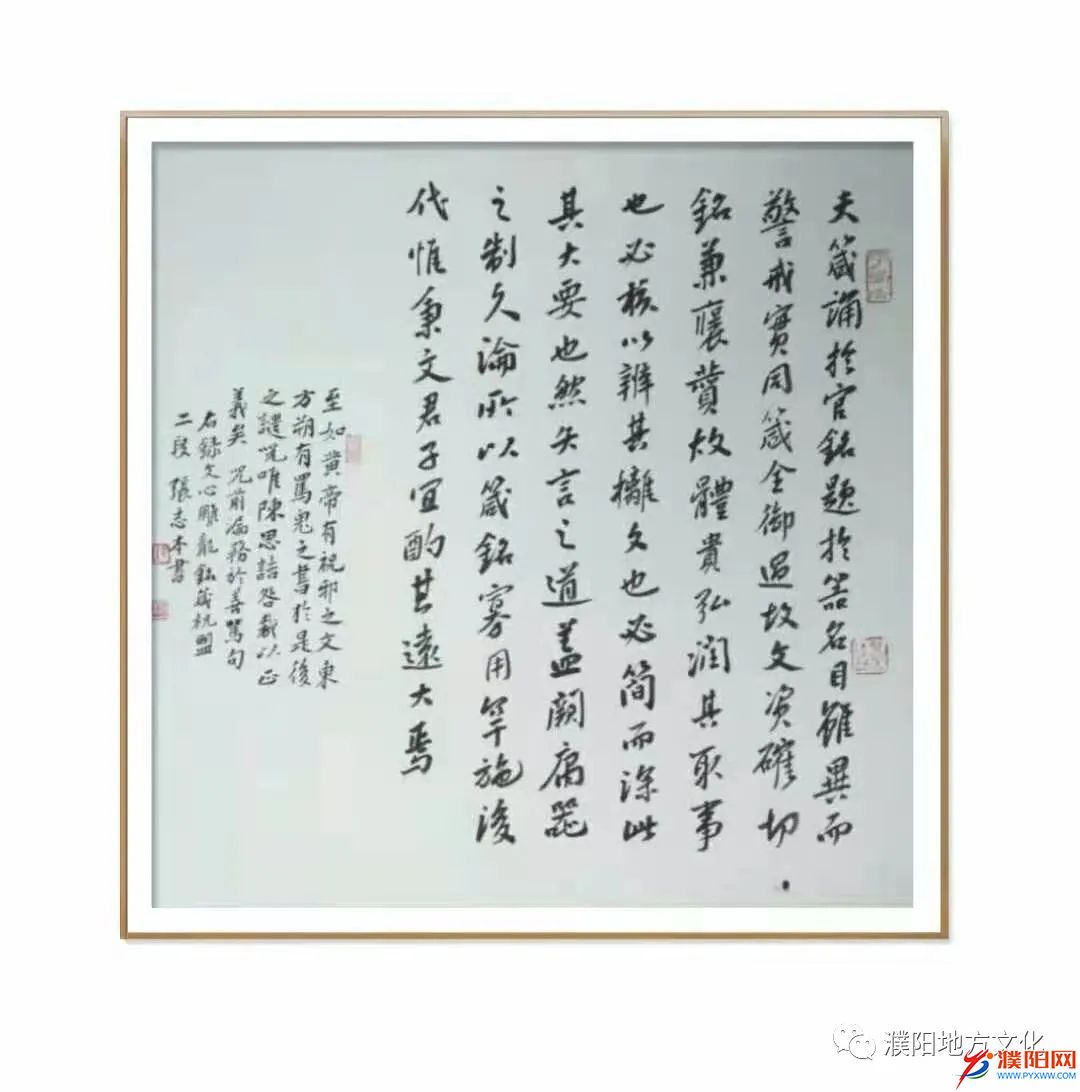 夫箴誦於官銘題於器名目雖異而
警戒實同箴全御過故文資確切
銘兼褒讚故體貴弘潤其取事
也必核以辨其摛文也必簡而深此
其大要也然矢言之道蓋闕庸器
之制久淪所以箴銘寡用罕施後
代惟秉文君子宜酌其遠大焉
至如黃帝有祝邪之文東
方朔有罵鬼之書於是後
之譴咒唯陳思誥咎裁以正
義矣 咒前漏務於善罵句
右錄文心雕龍銘箴祝盟
二段 張志本書
濮阳地方文化
濮阳网
WWW.PYXWW.COM